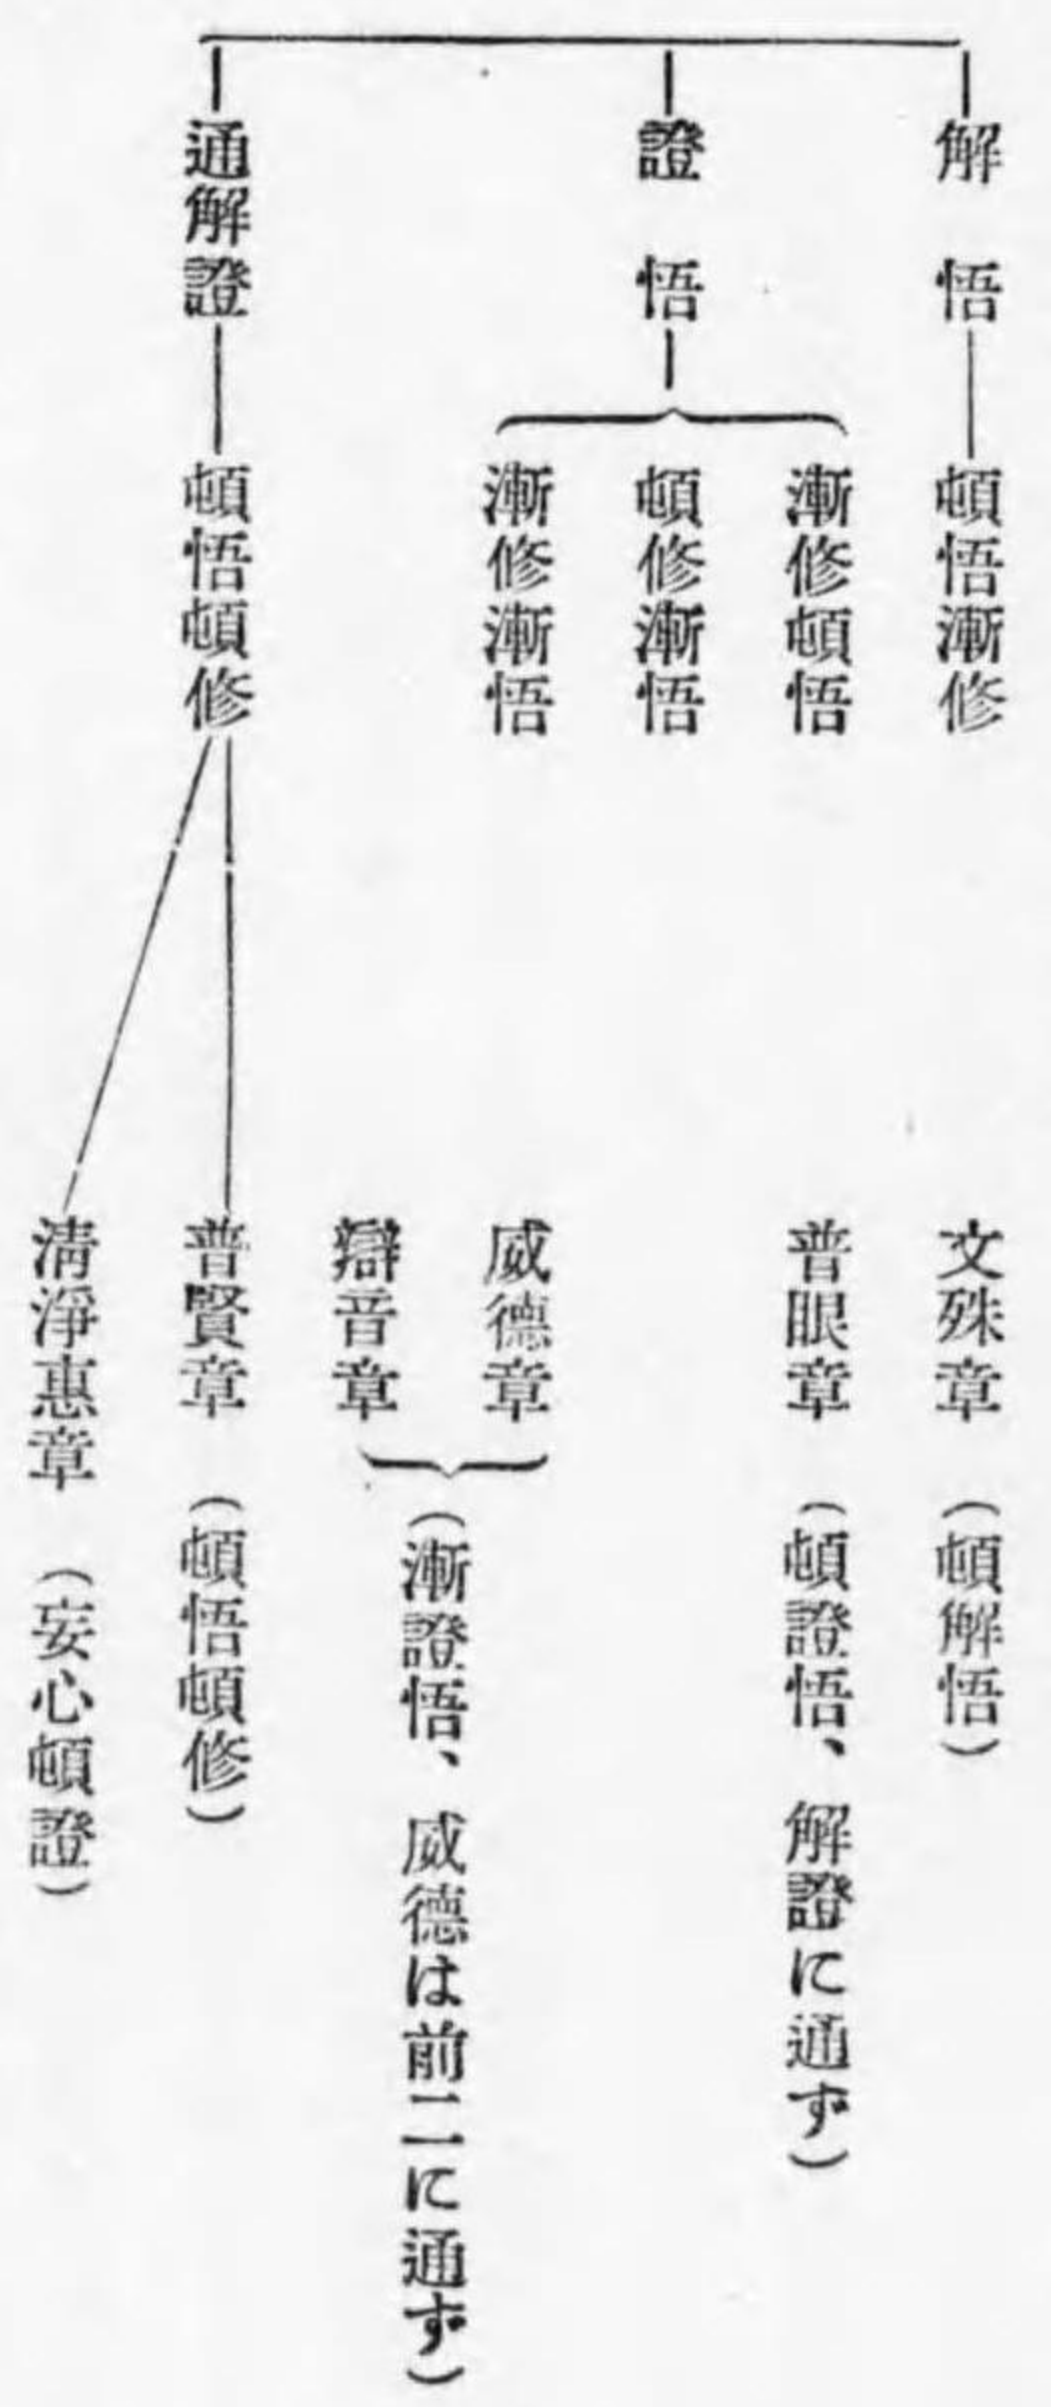 解悟
頓悟漸修
文殊章（頓解悟）
漸修頓悟
普眼章（頓證悟、解證に通ず）
證悟
頓修漸悟
漸修漸悟
威德章
（漸證悟、威德は前二に通ず）
辯音章
通解證
頓悟頓修
普賢章（頓悟頓修）
淸淨惠章（妄心頓證）